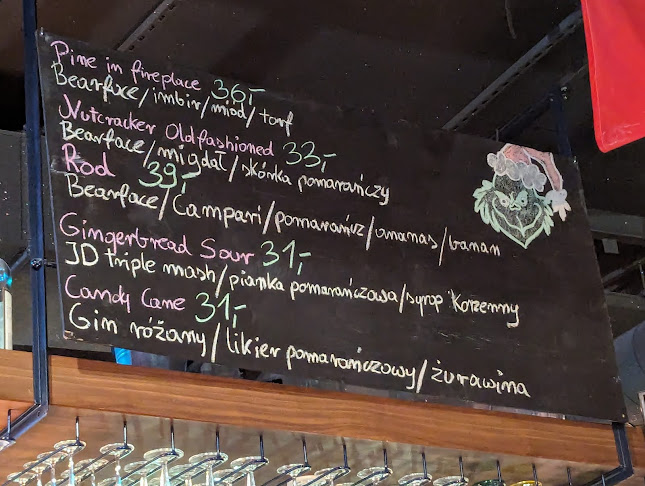 Pine in fireplace 36,-
Bearface/imbir/miód/torf
Nutcracker Oldfashioned 33,-
Bearface/migdał/skórka pomarańczy
Rod 39,-
Bearface/Campari/pomarańcz/ananas/banan
Gingerbread Sour 31,-
JD triple mash/pianka pomarańczowa/syrop korzenny
Candy Cane 31,-
Gin różany/likier pomarańczowy/żurawina